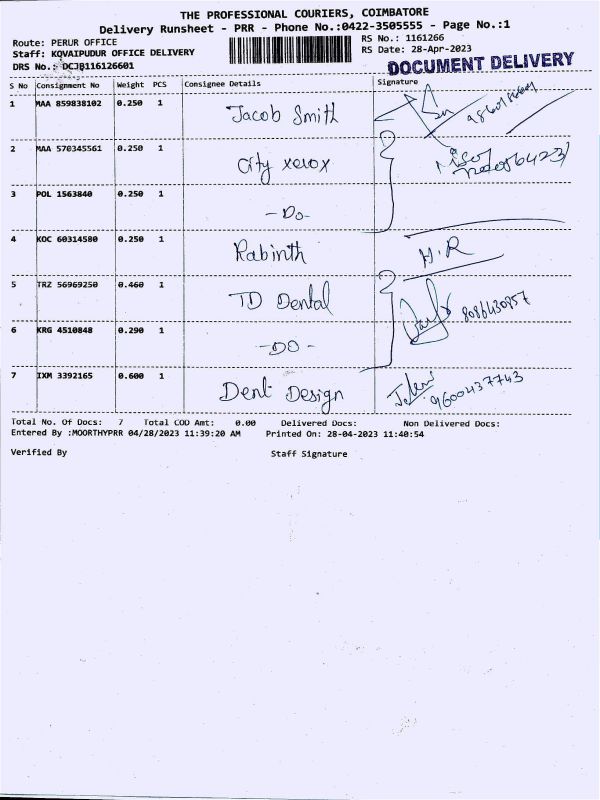 THE PROFESSIONAL COURIERS, COIMBATORE
Delivery Runsheet - PRR - Phone No.:0422-3505555 - Page No.:1
Route: PERUR OFFICE RS No.: 1161266
Staff: KOVAIPUDUR OFFICE DELIVERY RS Date: 28-Apr-2023
DRS No.: DCJB116126601 DOCUMENT DELIVERY
S No Consignment No Weight PCS Consignee Details Signature
1 MAA 859838102 0.250 1 Jacob Smith
2 MAA 570345561 0.250 1 City xerox
3 POL 1563840 0.250 1 -Do-
4 KOC 60314580 0.250 1 Rabinth H.R
5 TRZ 56969250 0.460 1 TD Dental 8086430957
6 KRG 4510848 0.290 1 -DO-
7 IXM 3392165 0.600 1 Dent Design 9600437743
Total No. Of Docs: 7 Total COD Amt: 0.00 Delivered Docs: Non Delivered Docs:
Entered By :MOORTHYPRR 04/28/2023 11:39:20 AM Printed On: 28-04-2023 11:40:54
Verified By Staff Signature